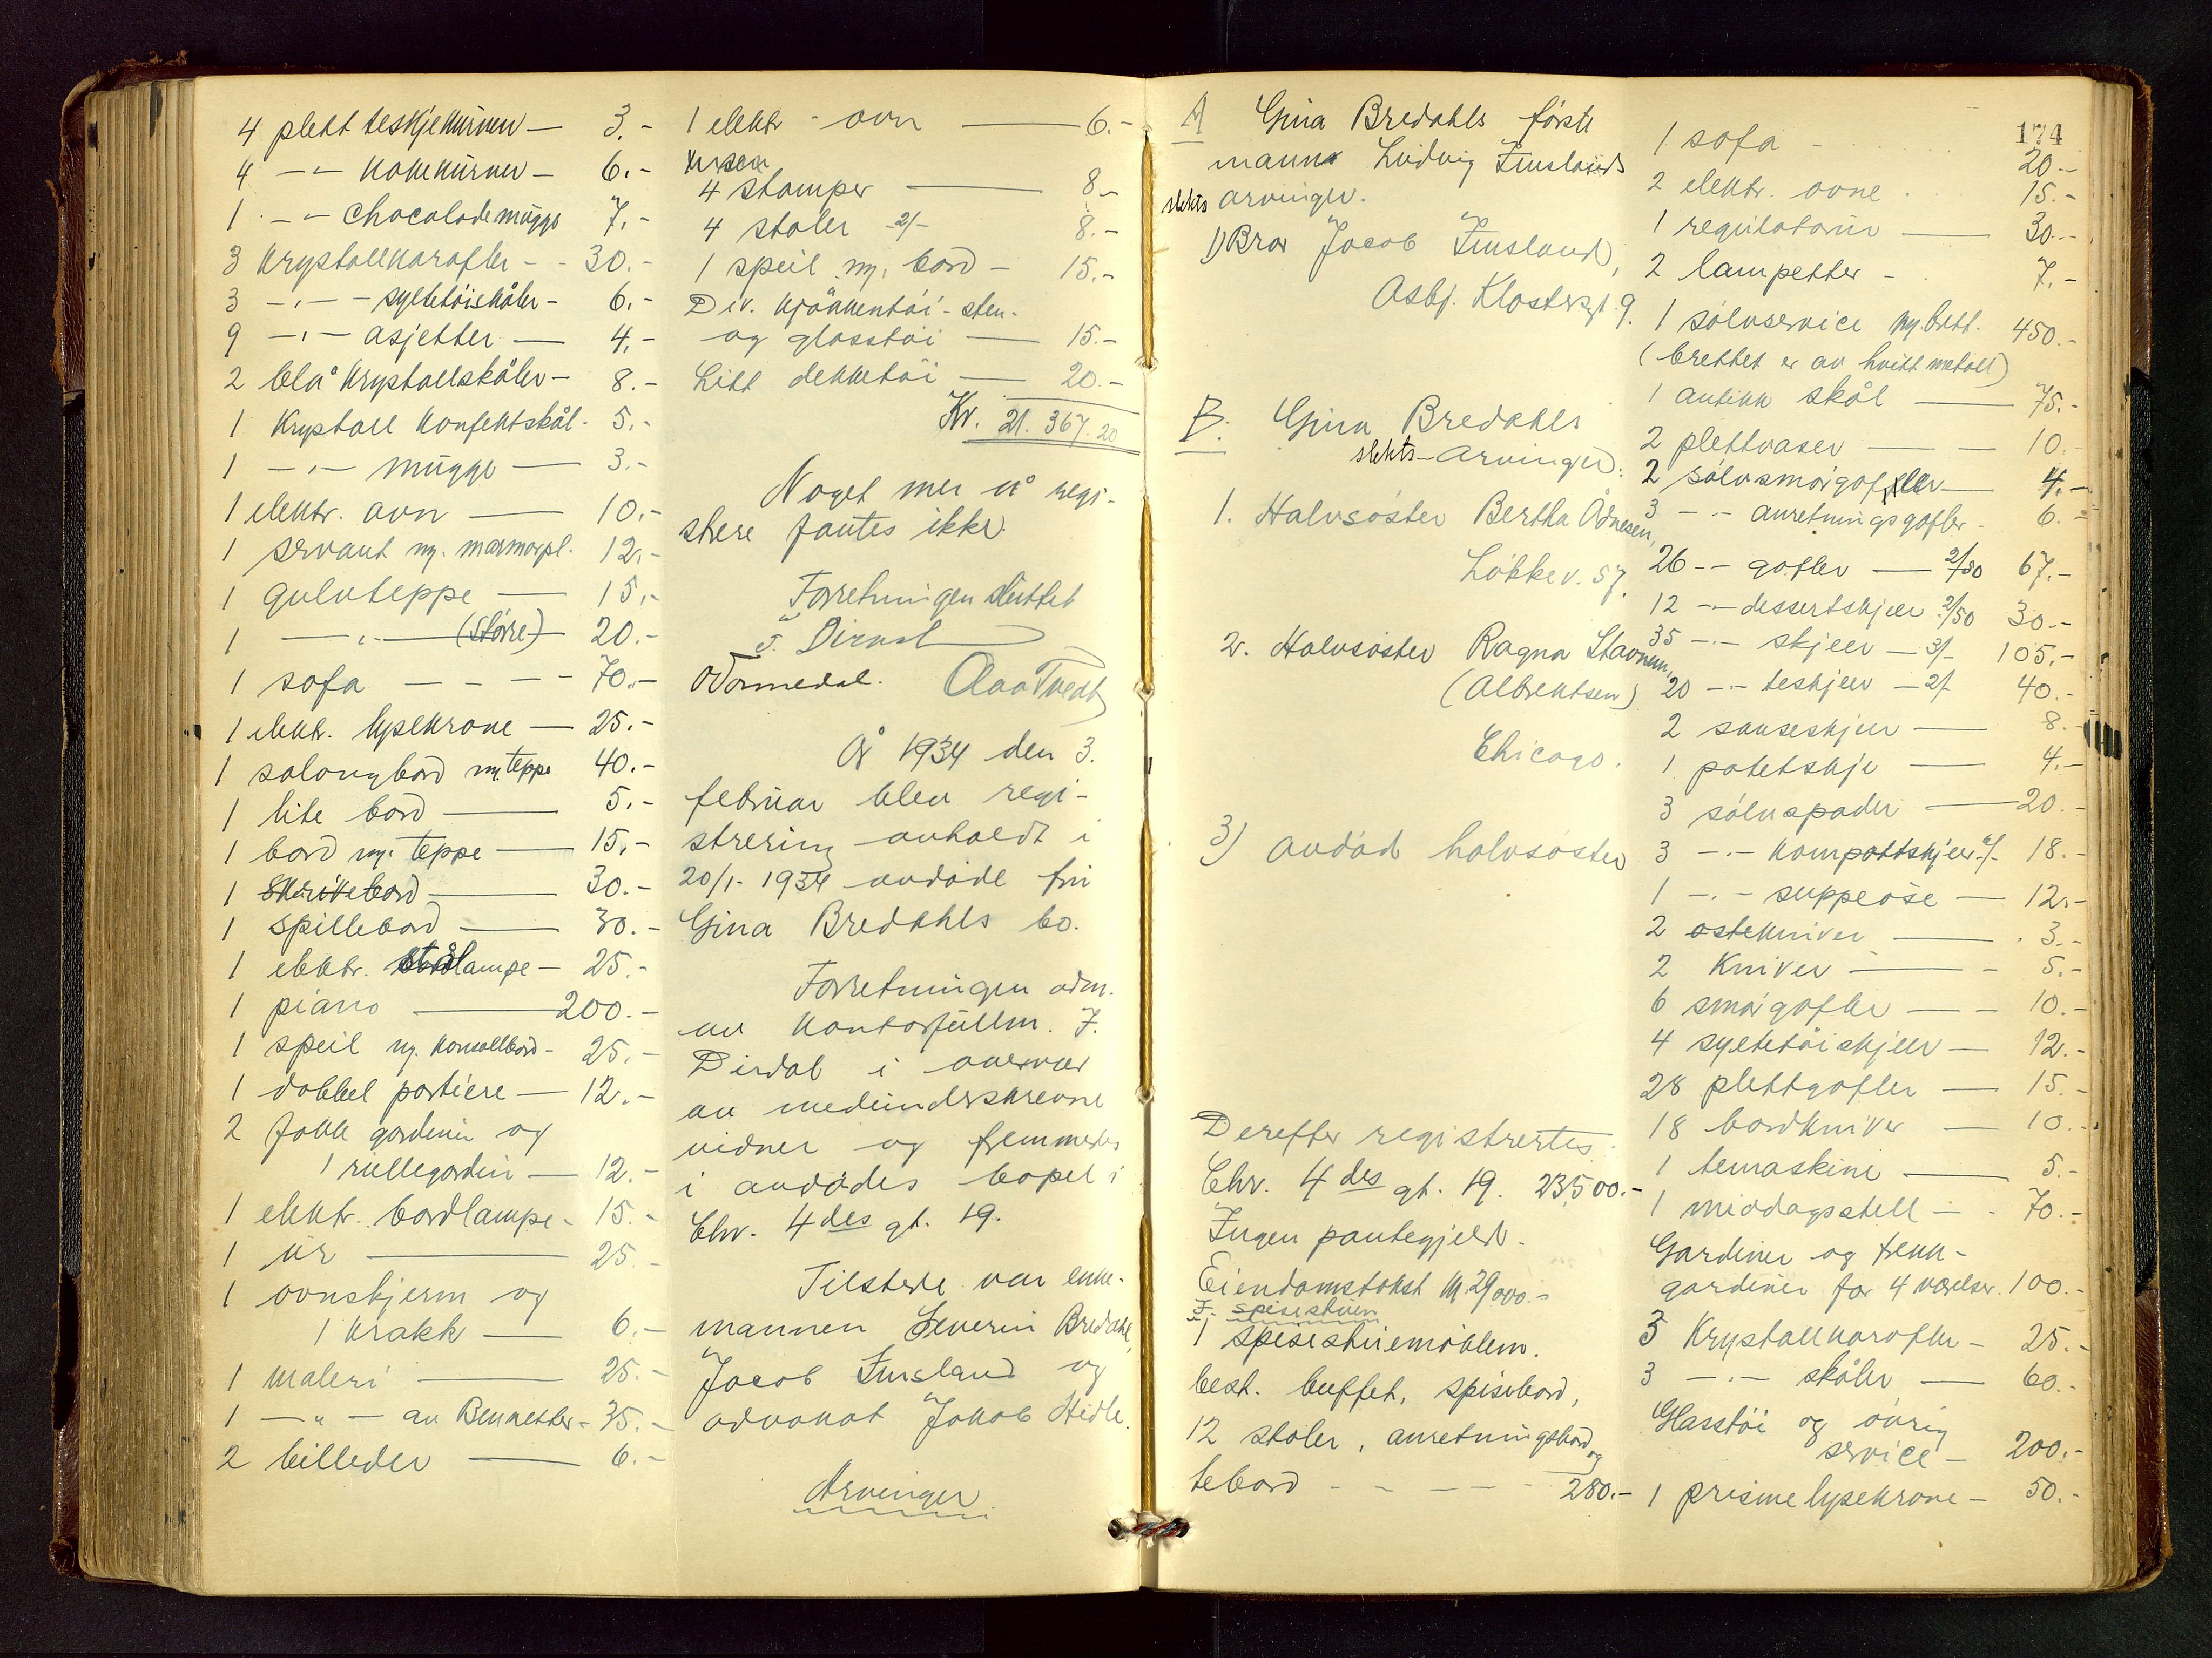 4 plett teskjekurver — 3.-
4 -"- kakekurver — 6.-
1 -"- chocolademugge 7.-
3 krystallkarafler - - 30.-
3 -"- syltetöiskåler - 6.-
9 -"- asjetter — 4.-
2 blå krystallskåler - 8.-
1 krystall konfektskål - 5.-
1 -"- mugge — 3.-
1 elektr. ovn — 10.-
1 servant m. marmorpl. 12.-
1 gulvteppe — 15.-
1 -"- (större) 20.-
1 sofa - - - - 70.-
1 elektr. lysekrone — 25.-
1 salongbord m. teppe 40.-
1 lite bord — 5.-
1 bord m. teppe — 15.-
1 skrivebord — 30.-
1 spillebord — 30.-
1 elektr. stålampe — 25.-
1 piano — 200.-
1 speil m. konsollbord - 25.-
1 dobbel portiere — 12.-
2 fakk gardiner og
1 rullegardin — 12.-
1 elektr. bordlampe - 15.-
1 ur — 25.-
1 ovnskjerm og
1 krakk — 6.-
1 maleri — 25.-
1 -"- av Bennetter - 35.-
2 billeder — 6.-
1 elektr. ovn — 6.-
4 stamper — 8.-
4 stoler 2/- 8.-
1 speil m. bord - 15.-
Div. kjökkentöi - sten-
og glasstöi — 15.-
Litt dekketöi — 20.-
Kr. 21.367.20
Noget mer å regi-
strere fantes ikke.
Forretningen sluttet
J. Dirdal
Aa Tvedt
År 1934 den 3.
februar blev regi-
strering avholdt i
20/1- 1934 avdöde fru
Gina Bredahls bo.
Forretningen adm.
av kontorfullm. J.
Dirdal i overvær
av medunderskrevne
vidner og fremmedes
i avdödes bopel i
Chr. 4des gt. 19.
Tilstede var enke-
mannen Severin Bredahl,
Jacob Imsland og
advokat Jakob Hidle.
Arvinger
174
A Gina Bredahls förste
manns Ludvig Imslands
slekts arvinger.
1) Bror Jacob Imsland,
Asbj. Klostergt. 9.
B. Gina Bredahls
slekts-arvinger:
1. Halvsöster Bertha Ådnesen,
Lökkev. 57.
2. Halvsöster Ragna Stavnum,
(Albrektsen)
Chicago.
3) avdöd halvsöster
Derefter registrertes.
Chr. 4des gt. 19. 23500.-
Ingen pantegjeld.
Eiendomstakst kr 29000.-
I. spisestuen
1 spisestuemöblem.
best. buffet, spisebord,
12 stoler, anretningsbord og
tebord - - - - 280.-
1 sofa - 20.-
2 elektr. ovne . 15.-
1 regulatorur — 30.-
2 lampetter - 7.-
1 sölvservice m. brett. 450.-
(brettet er av hvitt metall)
1 antikk skål — 75.-
2 plettvaser — 10.-
2 sölvsmörgafler — 4.-
3 -"- anretningsgafler - 6.-
26 -"- gafler — 2/50 67.-
12 -"- dessertskjeer 2/50 30.-
35 -"- skjeer — 3/- 105.-
20 -"- teskjeer — 2/- 40.-
2 sauseskjeer — 8.-
1 potetskje — 4.-
3 sölvspader — 20.-
3 -"- kompottskjeer 6/- 18.-
1 -"- suppeöse — 12.-
2 ostekniver — 3.-
2 kniver — 5.-
6 smörgafler — 10.-
4 syltetöiskjeer — 12.-
28 plettgafler — 15.-
18 bordkniver — 10.-
1 temaskine — 5.-
1 middagsstell - - 70.-
Gardiner og trekk-
gardiner for 4 værelser. 100.-
3 Krystallkarafler - 25.-
3 -"- skåler — 60.-
Glasstöi og övrig
service — 200.-
1 prisme lysekrone - 50.-